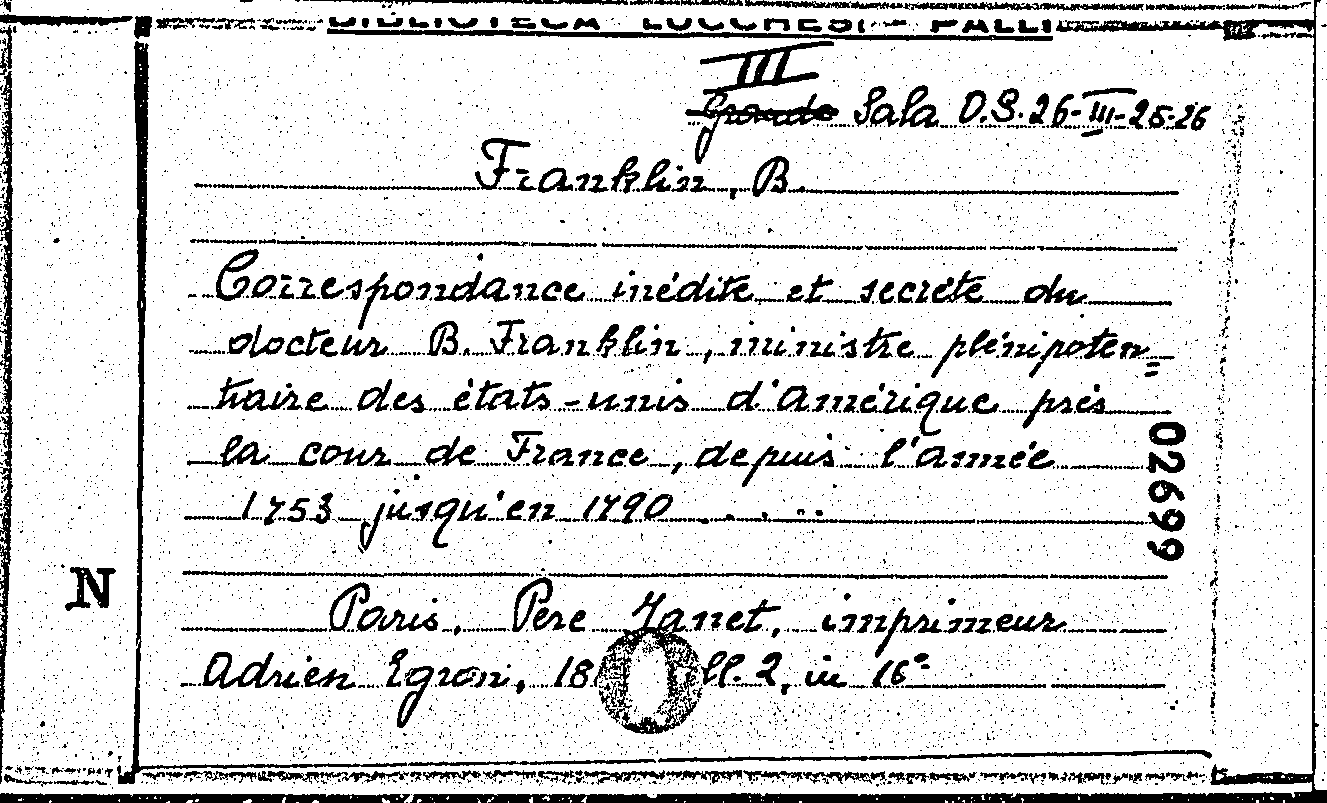 BIBLIOTECA LUCCHESI - PALLI
III
Grande Sala D.S. 26-III-25-26
Franklin, B.
Correspondance inédite et secrète du
docteur B. Franklin, ministre plénipoten=
tiaire des états-unis d'Amérique près
la cour de France, depuis l'année
1753 jusqu'en 1790 . . . . .
02699
N
Paris, Père Janet, imprimeur
Adrien Egron, 18 ll. 2, in 16°